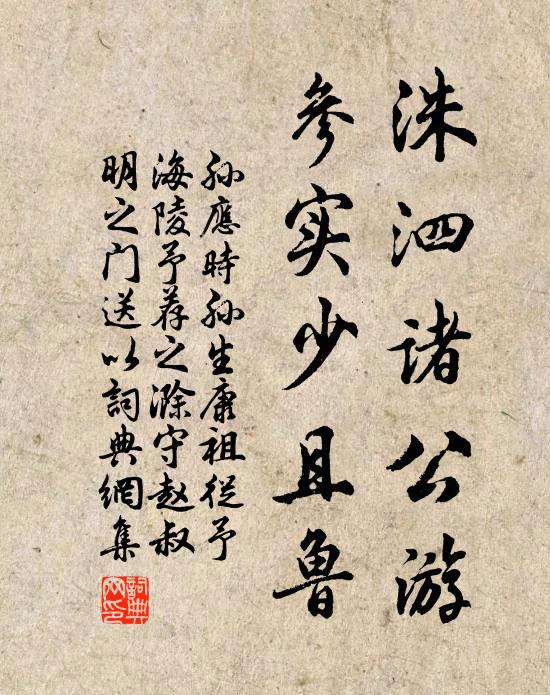 洙泗诸公游
参实少且鲁
孙應時孙生康祖從予
海陵予荐之滁守赵叔
明之门送以詞典網集
詞典网印